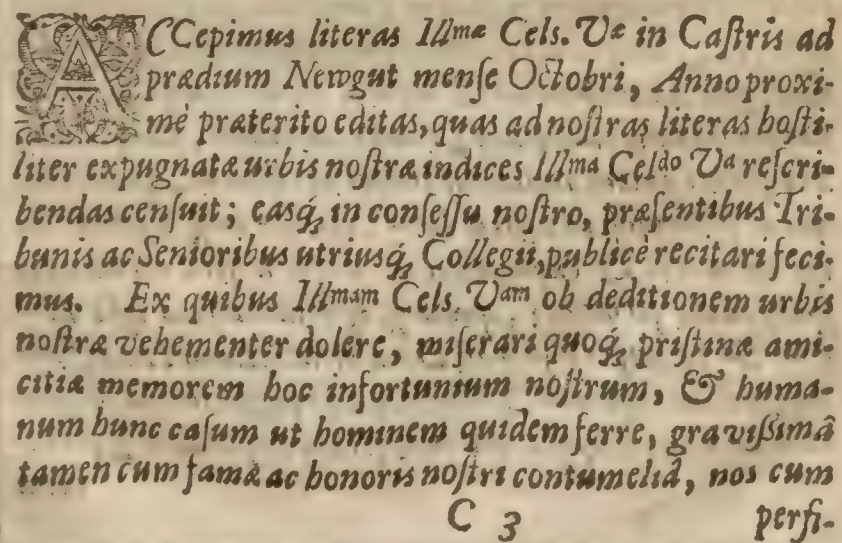 ACCepimus literas Illmæ Cels. Væ in Caſtris ad
prædium Newgut menſe Octobri, Anno proxi-
mè præterito editas, quas ad noſtras literas hoſti-
liter expugnatæ urbis noſtræ indices Illma Celdo Va reſcri-
bendas cenſuit; easq́; in conſeſſu noſtro, præſentibus Tri-
bunis ac Senioribus utriusq́; Collegii, publicè recitari feci-
mus. Ex quibus Illmam Cels. Vam ob deditionem urbis
noſtræ vehementer dolere, miſerari quoq́; priſtinæ ami-
citiæ memorem hoc infortunium noſtrum, & huma-
num hunc caſum ut hominem quidem ferre, graviſsimâ
tamen cum famæ ac honoris noſtri contumeliâ, nos cum
C 3 perfi-